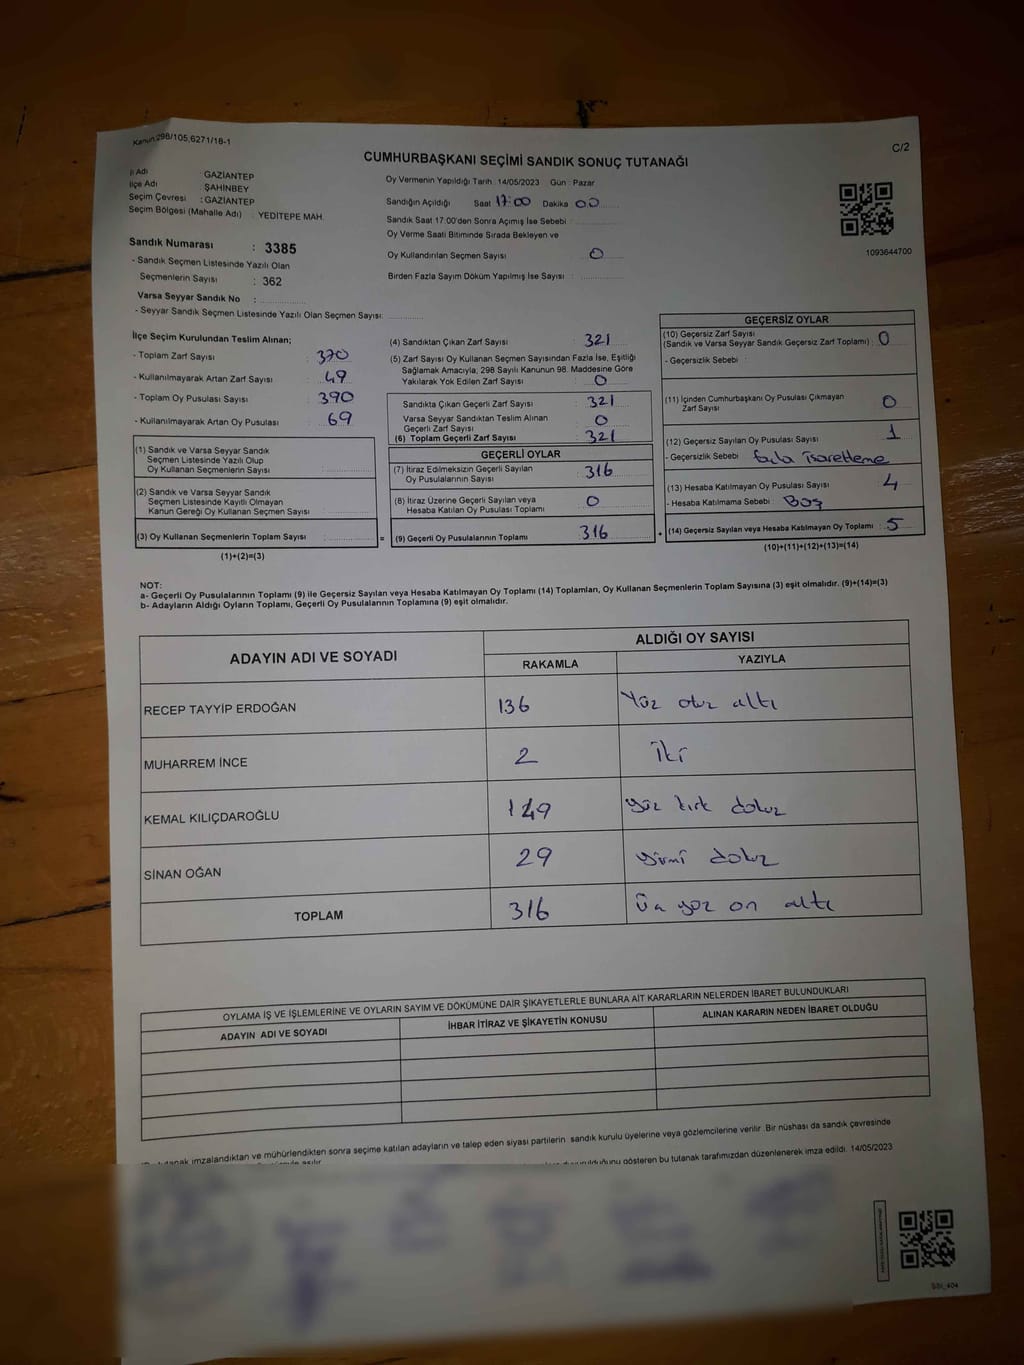 Kanun:298/105,6271/18-1
C/2
CUMHURBAŞKANI SEÇİMİ SANDIK SONUÇ TUTANAĞI
İl Adı GAZİANTEP
İlçe Adı ŞAHİNBEY
Seçim Çevresi : GAZİANTEP
Seçim Bölgesi (Mahalle Adı) : YEDİTEPE MAH.
Sandık Numarası : 3385
- Sandık Seçmen Listesinde Yazılı Olan
Seçmenlerin Sayısı : 362
Varsa Seyyar Sandık No :
- Seyyar Sandık Seçmen Listesinde Yazılı Olan Seçmen Sayısı:
Oy Vermenin Yapıldığı Tarih : 14/05/2023 Gün : Pazar
Sandığın Açıldığı Saat 17:00 Dakika 00
Sandık Saat 17:00'den Sonra Açımış İse Sebebi :
Oy Verme Saati Bitiminde Sırada Bekleyen ve
Oy Kullandırılan Seçmen Sayısı 0
Birden Fazla Sayım Döküm Yapılmış İse Sayısı :
1093644700
İlçe Seçim Kurulundan Teslim Alınan;
- Toplam Zarf Sayısı : 370
- Kullanılmayarak Artan Zarf Sayısı : 49
- Toplam Oy Pusulası Sayısı : 390
- Kullanılmayarak Artan Oy Pusulası : 69
(1) Sandık ve Varsa Seyyar Sandık
Seçmen Listesinde Yazılı Olup
Oy Kullanan Seçmenlerin Sayısı :
(2) Sandık ve Varsa Seyyar Sandık
Seçmen Listesinde Kayıtlı Olmayan
Kanun Gereği Oy Kullanan Seçmen Sayısı :
(3) Oy Kullanan Seçmenlerin Toplam Sayısı :
=
(1)+(2)=(3)
(4) Sandıktan Çıkan Zarf Sayısı : 321
(5) Zarf Sayısı Oy Kullanan Seçmen Sayısından Fazla İse, Eşitliği
Sağlamak Amacıyla, 298 Sayılı Kanunun 98. Maddesine Göre
Yakılarak Yok Edilen Zarf Sayısı : 0
Sandıkta Çıkan Geçerli Zarf Sayısı : 321
Varsa Seyyar Sandıktan Teslim Alınan
Geçerli Zarf Sayısı : 0
(6) Toplam Geçerli Zarf Sayısı : 321
GEÇERLİ OYLAR
(7) İtiraz Edilmeksizin Geçerli Sayılan
Oy Pusulalarının Sayısı : 316
(8) İtiraz Üzerine Geçerli Sayılan veya
Hesaba Katılan Oy Pusulası Toplamı : 0
(9) Geçerli Oy Pusulalarının Toplamı : 316
+
GEÇERSİZ OYLAR
(10) Geçersiz Zarf Sayısı
(Sandık ve Varsa Seyyar Sandık Geçersiz Zarf Toplamı) : 0
- Geçersizlik Sebebi :
(11) İçinden Cumhurbaşkanı Oy Pusulası Çıkmayan
Zarf Sayısı : 0
(12) Geçersiz Sayılan Oy Pusulası Sayısı : 1
- Geçersizlik Sebebi : fazla İsaretleme
(13) Hesaba Katılmayan Oy Pusulası Sayısı : 4
- Hesaba Katılmama Sebebi : Boş
(14) Geçersiz Sayılan veya Hesaba Katılmayan Oy Toplamı : 5
(10)+(11)+(12)+(13)=(14)
NOT:
a- Geçerli Oy Pusulalarının Toplamı (9) ile Geçersiz Sayılan veya Hesaba Katılmayan Oy Toplamı (14) Toplamları, Oy Kullanan Seçmenlerin Toplam Sayısına (3) eşit olmalıdır. (9)+(14)=(3)
b- Adayların Aldığı Oyların Toplamı, Geçerli Oy Pusulalarının Toplamına (9) eşit olmalıdır.
ADAYIN ADI VE SOYADI
ALDIĞI OY SAYISI
RAKAMLA YAZIYLA
RECEP TAYYİP ERDOĞAN 136 Yüz otuz altı
MUHARREM İNCE 2 İki
KEMAL KILIÇDAROĞLU 149 yüz kırk dokuz
SİNAN OĞAN 29 yirmi dokuz
TOPLAM 316 Üç yüz on altı
OYLAMA İŞ VE İŞLEMLERİNE VE OYLARIN SAYIM VE DÖKÜMÜNE DAİR ŞİKAYETLERLE BUNLARA AİT KARARLARIN NELERDEN İBARET BULUNDUKLARI
ADAYIN ADI VE SOYADI İHBAR İTİRAZ VE ŞİKAYETİN KONUSU ALINAN KARARIN NEDEN İBARET OLDUĞU
tutanak imzalandıktan ve mühürlendikten sonra seçime katılan adayların ve talep eden siyasi partilerin sandık kurulu üyelerine veya gözlemcilerine verilir. Bir nüshası da sandık çevresinde
gösteren bu tutanak tarafımızdan düzenlenerek imza edildi. 14/05/2023